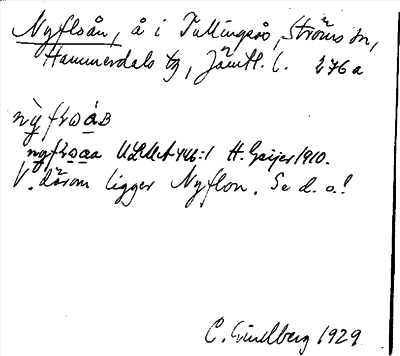 Nyflsån, å i Tullingsås, Ströms sn,
Hammerdals tg, Jämtl. l. 276a
nỳfɫωáɴ
nyfɫωaa ULMA 446:1 H. Geijer 1910.
V. därom ligger Nyflon. Se d. o.!
C. Lindberg 1929